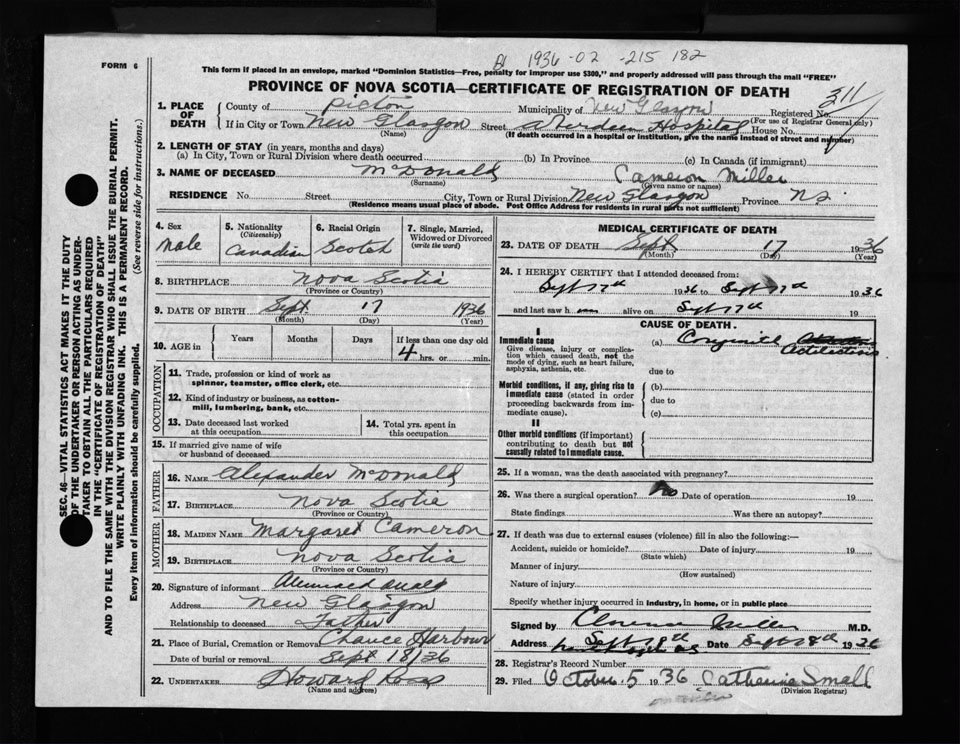 1936 -02 -215 182
FORM 6
This form if placed in an envelope, marked "Dominion Statistics—Free, penalty for improper use $300," and properly addressed will pass through the mail "FREE"
PROVINCE OF NOVA SCOTIA—CERTIFICATE OF REGISTRATION OF DEATH
311
1. PLACE OF DEATH County of Pictou Municipality of New Glasgow Registered No.
(For use of Registrar General only)
If in City or Town New Glasgow Street Aberdeen Hospital House No.
(Name) (If death occurred in a hospital or institution, give the name instead of street and number)
2. LENGTH OF STAY (in years, months and days)
(a) In City, Town or Rural Division where death occurred (b) In Province (c) In Canada (if immigrant)
3. NAME OF DECEASED McDonald Cameron Miller
(Surname) (Given name or names)
RESIDENCE No. Street City, Town or Rural Division New Glasgow Province NS
(Residence means usual place of abode. Post Office Address for residents in rural parts not sufficient)
4. Sex Male
5. Nationality (Citizenship) Canadian
6. Racial Origin Scotch
7. Single, Married, Widowed or Divorced (write the word)
8. BIRTHPLACE Nova Scotia
(Province or Country)
9. DATE OF BIRTH Sept. 17 1936
(Month) (Day) (Year)
10. AGE in Years Months Days If less than one day old
4 hrs. or min.
OCCUPATION
11. Trade, profession or kind of work as spinner, teamster, office clerk, etc.
12. Kind of industry or business, as cotton-mill, lumbering, bank, etc.
13. Date deceased last worked at this occupation
14. Total yrs. spent in this occupation
15. If married give name of wife or husband of deceased
FATHER
16. NAME Alexander McDonald
17. BIRTHPLACE Nova Scotia
(Province or Country)
MOTHER
18. MAIDEN NAME Margaret Cameron
19. BIRTHPLACE Nova Scotia
(Province or Country)
20. Signature of informant
Address New Glasgow
Relationship to deceased Father
21. Place of Burial, Cremation or Removal Chance Harbour
Date of burial or removal Sept 18/36
22. UNDERTAKER Howard Ross
(Name and address)
MEDICAL CERTIFICATE OF DEATH
23. DATE OF DEATH Sept 17 1936
(Month) (Day) (Year)
24. I HEREBY CERTIFY that I attended deceased from:
Sept 17th 1936 to Sept 17th 1936
and last saw h alive on Sept 17th 19
CAUSE OF DEATH.
I
Immediate cause
Give disease, injury or complication which caused death, not the mode of dying, such as heart failure, asphyxia, asthenia, etc.
(a)
due to
Morbid conditions, if any, giving rise to immediate cause (stated in order proceeding backwards from immediate cause).
(b)
due to
(c)
II
Other morbid conditions (if important) contributing to death but not causally related to immediate cause.
25. If a woman, was the death associated with pregnancy?
26. Was there a surgical operation? No Date of operation 19
State findings Was there an autopsy?
27. If death was due to external causes (violence) fill in also the following:—
Accident, suicide or homicide? Date of injury 19
(State which)
Manner of injury
(How sustained)
Nature of injury
Specify whether injury occurred in industry, in home, or in public place
Signed by Clarence Miller M.D.
Address Date Sept 18th 1936
28. Registrar's Record Number
29. Filed October 5 1936 Catherine Small
(Division Registrar)
SEC. 46—VITAL STATISTICS ACT MAKES IT THE DUTY
OF THE UNDERTAKER OR PERSON ACTING AS UNDER-
TAKER TO OBTAIN ALL THE PARTICULARS REQUIRED
IN THE "CERTIFICATE OF REGISTRATION OF DEATH"
AND TO FILE THE SAME WITH THE DIVISION REGISTRAR WHO SHALL ISSUE THE BURIAL PERMIT.
WRITE PLAINLY WITH UNFADING INK. THIS IS A PERMANENT RECORD.
Every item of information should be carefully supplied. (See reverse side for instructions.)